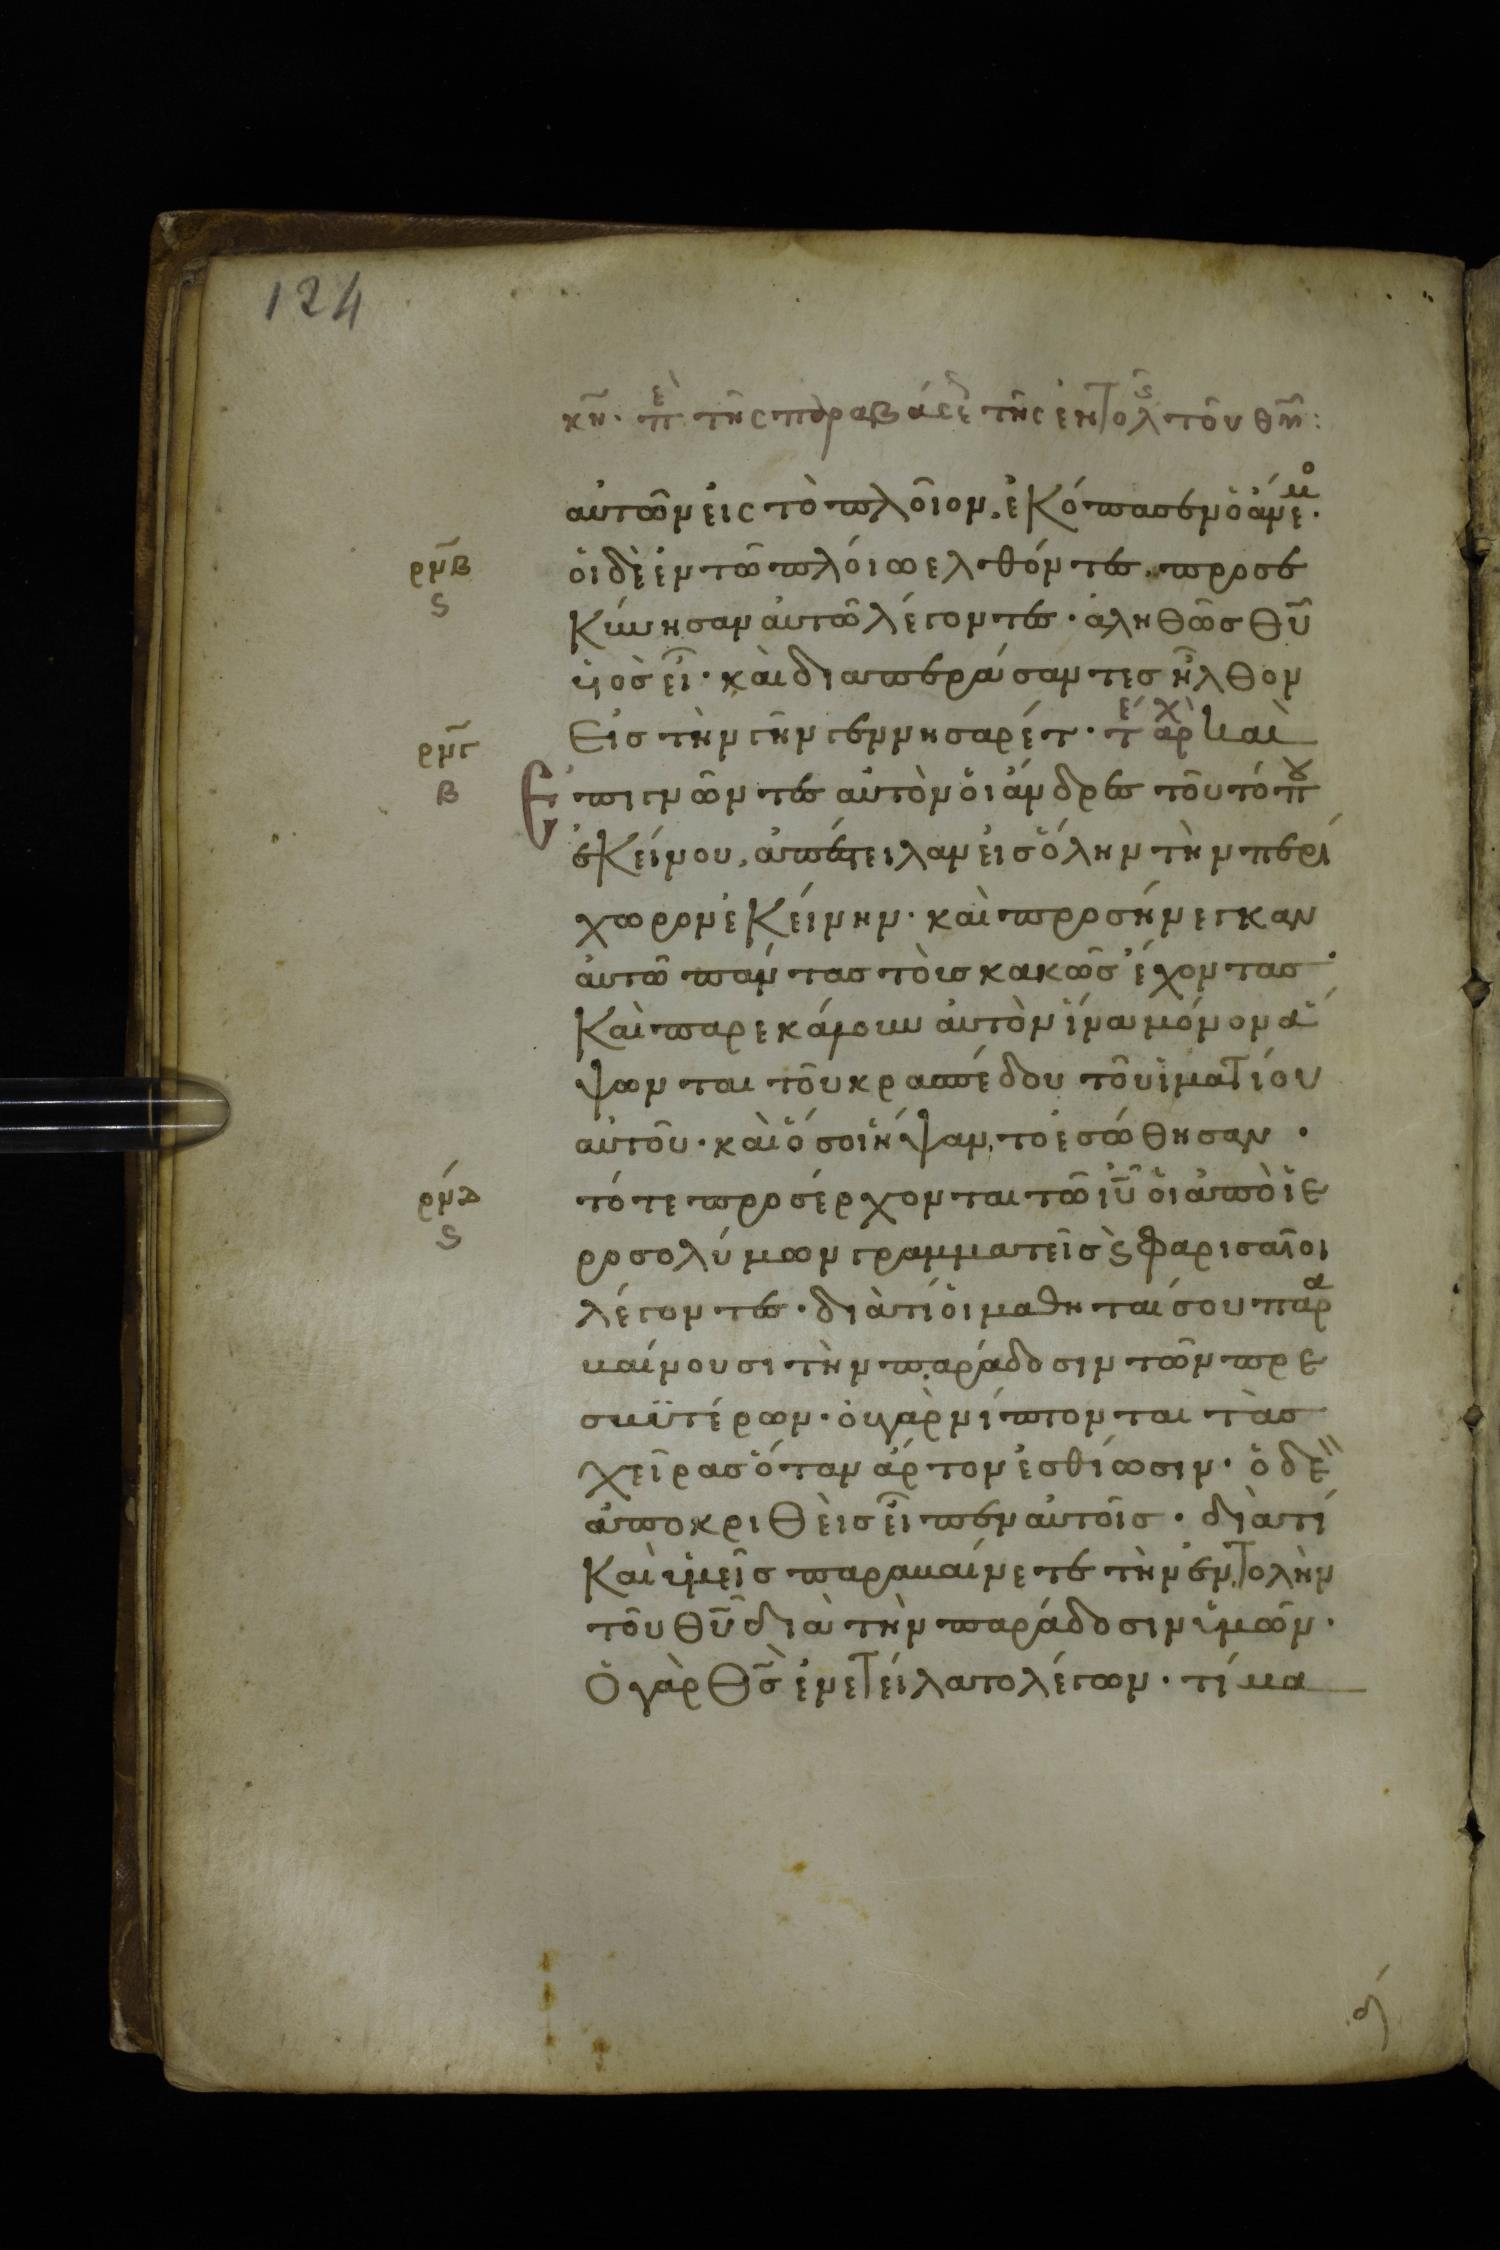 124
κη̅· πὲ τῆς παραβάσε τῆς ἐντολ τοῦ θῡ:
αὐτῶν εἰς τὸ πλοῖον, ἐκόπασεν ὁ ἄνεμο·
ρμβ
οἱ δὲ ἐν τῶ πλοίω ελθόντες, προσε
ς
κύνησαν αὐτῶ λέγοντες· ἀληθῶσ θῡ
υἱὸσ εἶ· καὶ διαπεράσαντεσ ἦλθον
Εἰσ τὴν γῆν γεννησαρέτ· τέ αρχ καὶ
ρμγ
β
Ἐπιγνῶντες αὐτὸν οἱ ἄνδρες τοῦ τόπου
ἐκείνου, ἀπέστειλαν εἰσ ὅλην τὴν περί
χωρον ἐκείνην· καὶ προσήνεγκαν
αὐτῶ πάντασ τοὺσ κακῶσ ἔχοντασ·
Καὶ παρεκάλουν αὐτὸν ἵνα μόνον ἅ
ψωνται τοῦ κρασπέδου τοῦ ἱματίου
αὐτοῦ· καὶ ὅσοι ἥψαντο ἐσώθησαν·
ρμδ
τότε προσέρχονται τῶ ιῡ οἱ ἀπὸ ἱε
ς
ροσολύμων γραμματεῖσ ϗ φαρισαῖοι
λέγοντες· διὰτί οἱ μαθηταί σου παρα
βαίνουσι τὴν παράδοσιν τῶν πρε
σβϋτέρων· ὀυ γὰρ νίπτονται τὰσ
χεῖρασ ὅταν ἄρτον ἐσθίωσιν· ὁ δὲ
ἀποκριθεὶσ εἶπεν αὐτοῖσ· διατί
Καὶ ὑμεῖσ παραβαίνετε τὴν ἐντολὴν
τοῦ θῡ διὰ τὴν παράδοσιν ὑμῶν·
Ὁ γὰρ θσ̅ ἐνετείλατο λέγων· τίμα